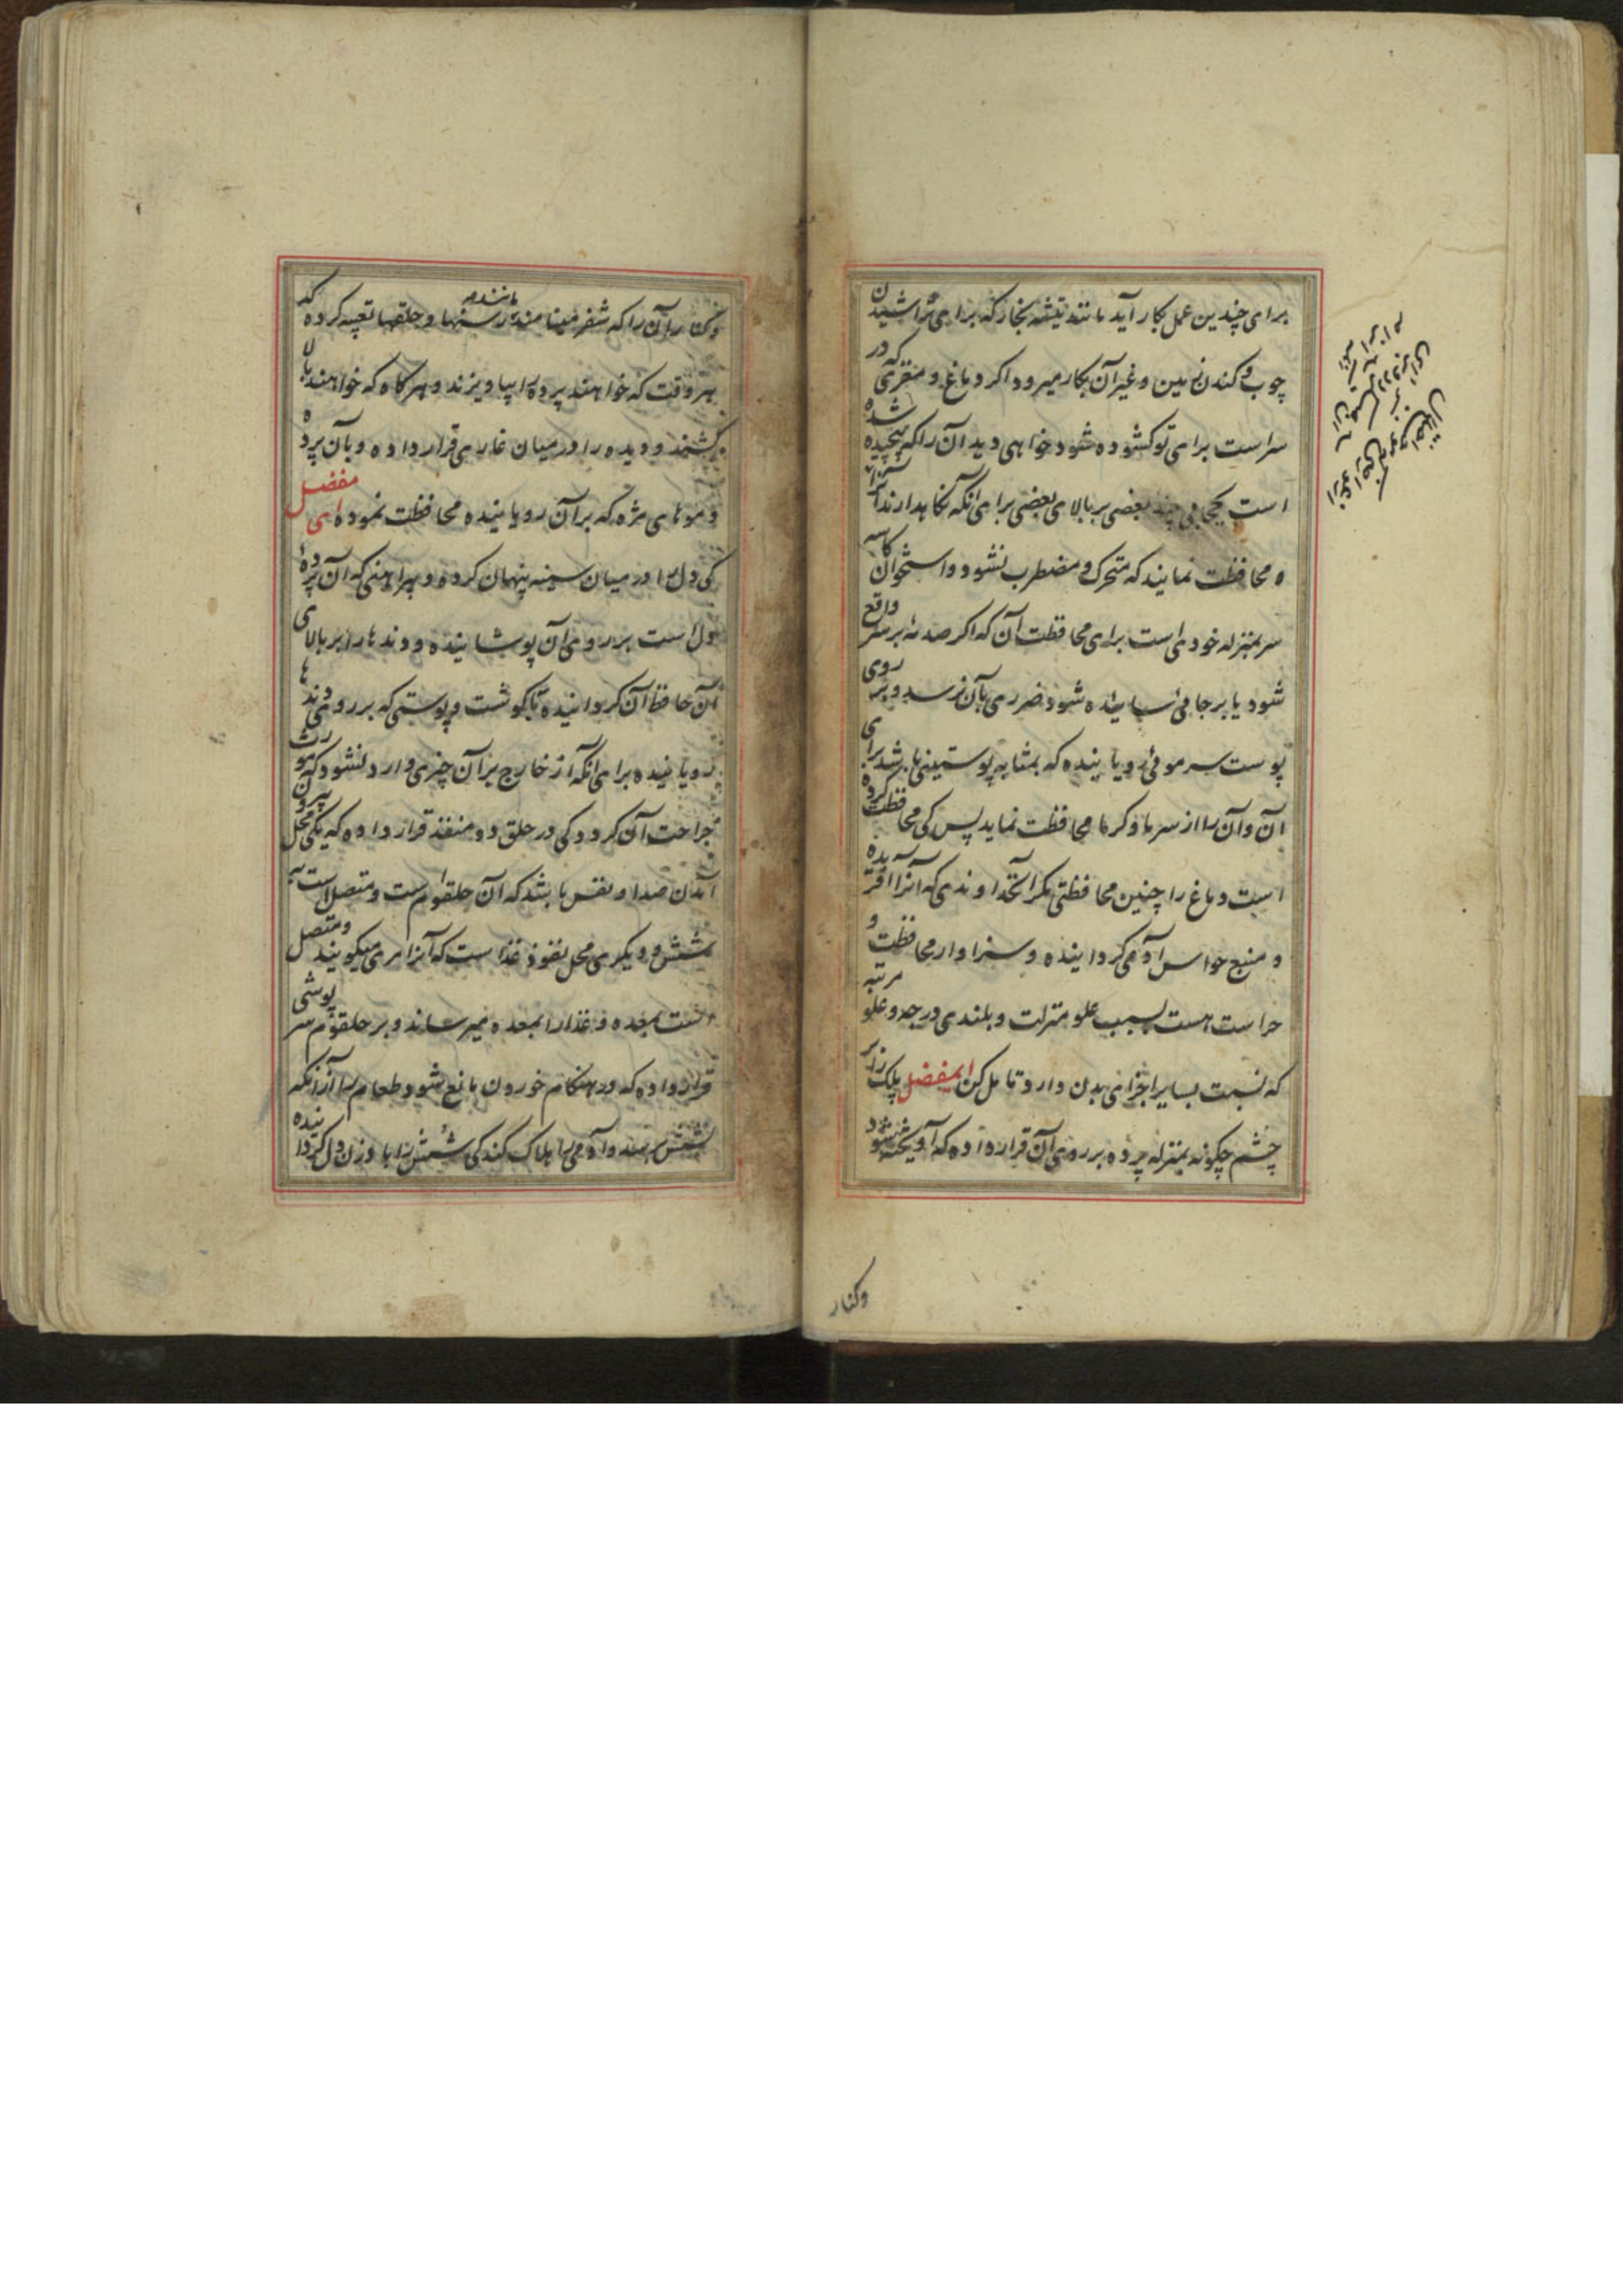 برای چندین عمل بکار آید مانند تیشه نجار که برای تراشیدن
چوب و کندن زمین و غیر آن بکار میرود اکر دماغ و مغزی که در
سر است برای تو کشوده شود خواهی دید آن را که پیچیده شده
است بعضی بر بالای بعضی برای آنکه نکاهدارند آنرا
ه محافظت نمایند که متحرک و مضطرب نشود و استخوان کاسه
سر بمنزله خودی است برای محافظت آن که اکر صدمهٔ بر سر واقع
شود یا بر جائی سائیده شود ضرری بآن نرسد و بر روی
پوست سر موئی رویانیده که بمثابه پوستینی باشد برای
آن و آن را از سرما و کرما محافظت نماید پس کی محافظت کرده
است دماغ را چنین محافظتی مکر آنخداوندی که آنرا آفریده
و منبع حواس آدمی کردانیده و سزاوار محافظت و
حراست هست بسبب علو منزلت و بلندی درجه و علو مرتبه
که نسبت بسایر اجزای بدن دارد تامل کن ایمفضل پلک زبر
چشم چکونه بمنزله پرده بر روی آن قرار داده که آویخته شود
وکنار
و کنار آن را که شفر مینامند مانند ریسمانها و حلقها تعبیه کرده که
هر وقت که خواهند پرده را بیاویزند و هر کاه که خواهند بالا
کشند و دیده را در میان غاری قرار داده و بآن پرده
و موهای مژه که بر آن رویانیده محافظت نموده ای مفضل
کی دل را در میان سینه پنهان کرده و پیراهنی که آن پردهٔ
دل است بر روی آن پوشانیده و دندها را بر بالای
آن حافظ آن کردانیده با کوشت و پوستی که بر روی دندها
رویانیده برای آنکه از خارج بر آن چیزی وارد نشود که مورث
جراحت آن کردد کی در حلق دو منفذ قرار داده که یکی محل بیرون
آمدن صدا و نفس باشد که آن حلقوم است و متصل است به
شش و دیکری محل نفوذ غذا ست که آنرا مری میکویند و متصل
است بمعده و غذا را بمعده میرساند و بر حلقوم سر پوشی
قرار داده که در هنکام خوردن مانع شود طعام را از آنکه
بشش رسد و آدمی را هلاک کند کی شش را باد زن دل کردانیده